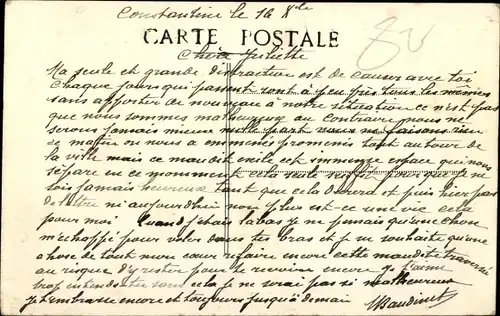 Constantine le 16 Xbre
CARTE POSTALE
Chère Juliette
Ma seule et grande distraction est de causer avec toi
Chaque jours qui passent sont a peu près tous les mêmes
sans apporter de nouveau à notre situation ce n'est pas
que nous sommes malheureux au contraire nous ne
serons jamais mieux nulle part nous ne faisons rien
ce matin on nous a emmenés promenés tout autour de
la ville mais ce maudit exile cet immense espace qui nous
sépare en ce moment cela seul suffit pour que je ne
sois jamais heureux tant que cela durera et puis hier pas
de lettre ni aujourd'hui non plus est ce une vie cela
pour moi Quand j'étais labas je ne pensais qu'une chose
m'echappé pour voler dans tes bras et je ne souhaite qu'une
chose de tout mon cœur refaire encore cette maudite traversée
au risque d'y rester pour te revoir encore je t'aime
trop sans cela je ne serai pas si malheureux
Je t'embrasse encore et toujours jusqu'à demain